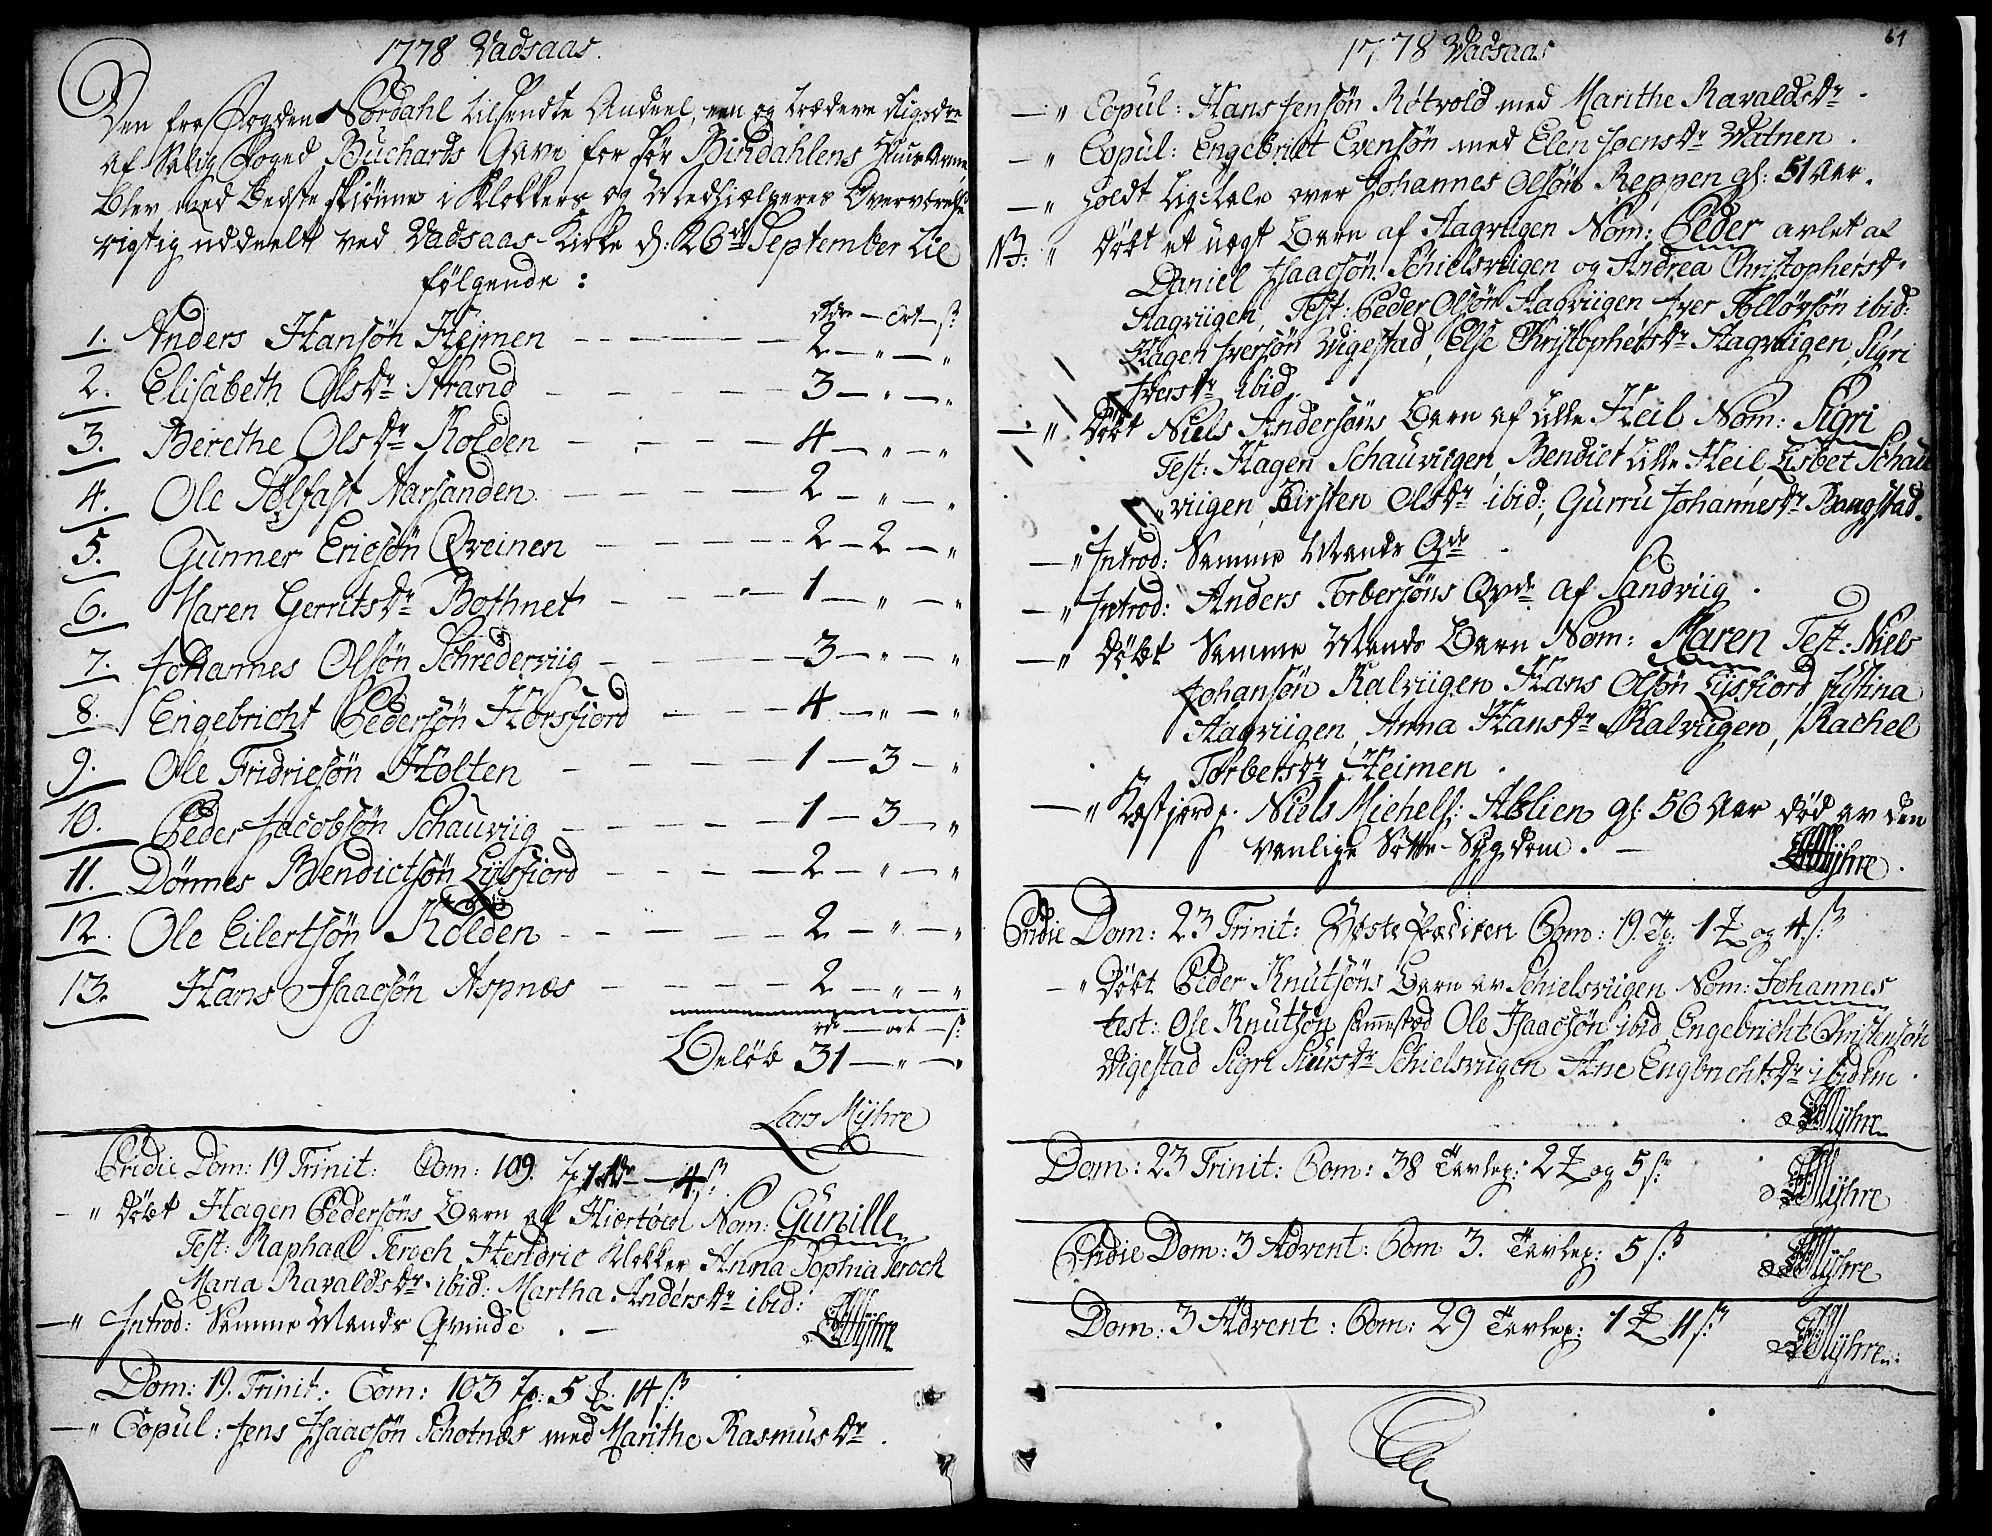 1778 Vadsaas.
Den fra Fogden Nordahl tilsendte Andeel, een og tredeve Rigsdr
af Salig Foged Buchards Gave for Sør Bindahlens Huus Arme
blev med bedste skiønne i Klokkers og Medhielperes Overværelse
rigtig uddeelt ved Vadsaas Kirke d: 26de September til
følgende:
rdr — ort — s:
1. Anders Hansøn Hejmen — 2 — " — "
2. Elisabeth Olsdr Strand — 3 — " — "
3. Berethe Olsdr Kolden — 4 — " — "
4. Ole Sølfast Aarsanden — 2 — " — "
5. Gunner Ericsøn Qveinen — 2 — 2 — "
6. Maren Gerritsdr Bothnet — 1 — " — "
7. Johannes Olsøn Schrederviig — 3 — " — "
8. Engebricht Pedersøn Horsfiord — 4 — " — "
9. Ole Fridricsøn Holten — 1 — 3 — "
10. Peder Jacobsøn Schauviig — 1 — 3 — "
11. Dønnes Bendictsøn Lysfiord — 2 — " — "
12. Ole Eilertsøn Kolden — 2 — " — "
13. Hans Isaacsøn Aspnæs — 2 — " — "
rdr — ort — s:
Beløb 31 — " — "
Lars Myhre
Pridie Dom: 19 Trinit: Com: 109. Tp. 1 rdr — 4 s:
— " Døbt Hagen Pedersøns Barn af Hiertøen Nom: Gunille
Test: Raphael Jeroch, Hendric Klokker Anna Sophia Jeroch
Maria Ravaldsdr ibid: Martha Andersdr ibid:
— " Introd: Samme Mands Qvinde. — LMyhre
Dom: 19. Trinit: Com: 103 Tp: 5 14 s:
— " Copul: Jens Isaacsøn Schotnæs med Marithe Rasmusdr.
1778 Vadsaas
61
— " Copul: Hans Jensøn Røtvold med Marithe Ravaldsdr.
— " Copul: Engebricht Evensøn med Elen Joensdr Watnen.
— " holdt Lig-tale over Johannes Olsøn Reppen gl: 51 Aar.
NB: " Døbt et uægt Barn af Hagviigen Nom: Peder avlet af
Daniel Isaacsøn Schielsviigen og Andrea Christophersdr
Hagviigen, Test: Peder Olsøn Hagviigen, Iver Tolløvsøn ibid:
Hagen Iversøn Vigestad, Else Christophersdr Hagviigen, Sigri
Iversdr ibid.
— " Døbt Niels Andersøns Barn af Lille Heil Nom: Sigri
Test: Hagen Schauviigen, Bendict Lille Heil, Lisbet Schau-
viigen, Kirsten Olsdr ibid:, Gurru Johannesdr Bangstad.
— " Introd: Samme Mands Qde
— " Introd: Anders Torbersøns Qvde af Sandviig.
— " Døbt Samme Mands Barn Nom: Maren Test: Niels
Johansøn Kalviigen Hans Olsøn Lysfiord Justina
Hagviigen, Anna Hansdr Kalviigen, Rachel
Torbersdr Heimen.
— " Kastjord p. Niels Michels: Ablien gl: 56 Aar død av den
vanlige Sotte-Sygdom. — LMyhre.
Pridie Dom: 23 Trinit: Com: 19. Tp: 1 og 4 s:
— " Døbt Peder Knutsøns Barn av Schielsviigen Nom: Johannes
test: Ole Knutsøn sammested Ole Isaacsøn ibid Engebricht Christensøn
Wigestad Sigri Siursdr Schielsviigen Ane Engbrichtsdr ibidem.
LMyhre
Dom: 23 Trinit: Com: 38 Tavlep: 2 og 5 s:
LMyhre
Pridie Dom: 3 Advent: Com 3. Tavlep: 5 s:
LMyhre
Dom: 3 Advent: Com: 29 Tavlep: 1 11 s:
LMyhre